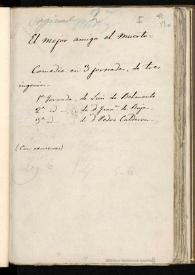 El mejor amigo el muerto.
Comedia en 3 jornadas, de tres
ingenios.
1ª Jornada, de Luis de Belmonte
2ª id de D. Franco de Rojas
3ª id de D. Pedro Calderon
(Con censuras)